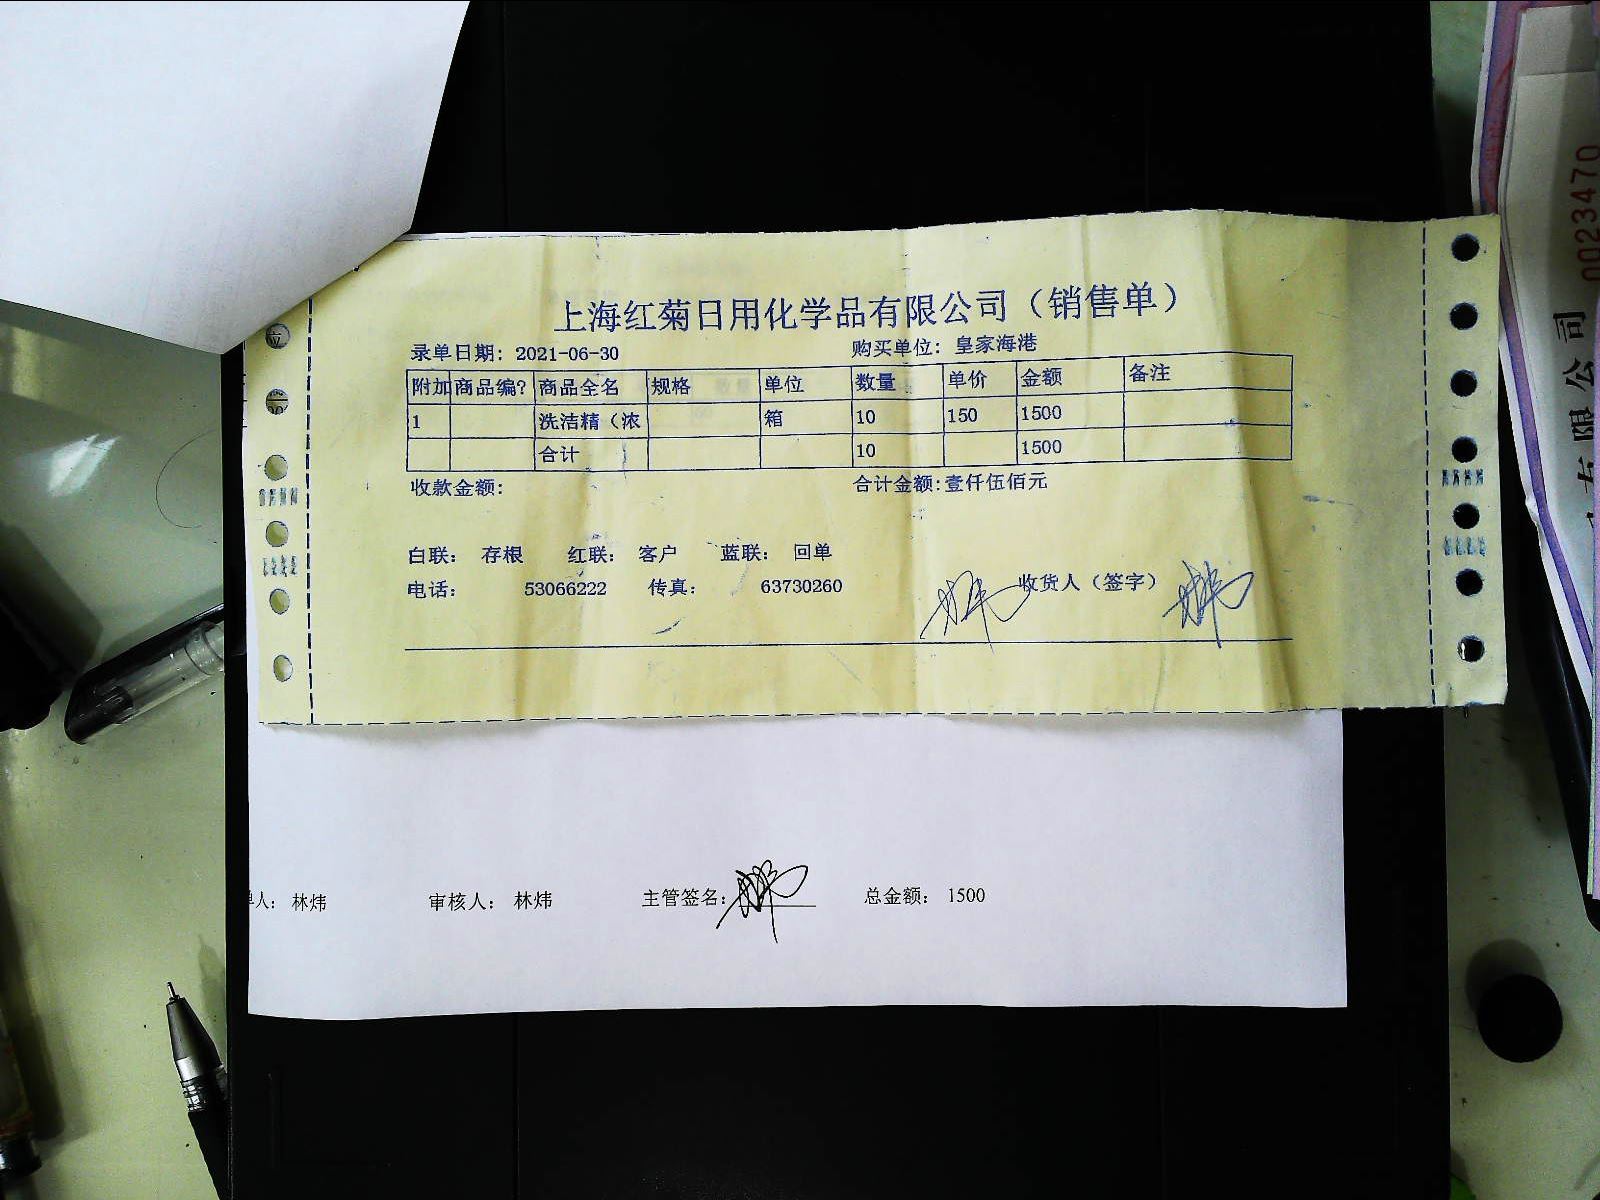 上海红菊日用化学品有限公司（销售单）
录单日期: 2021-06-30 购买单位: 皇家海港
附加 商品编? 商品全名 规格 单位 数量 单价 金额 备注
1 洗洁精（浓 箱 10 150 1500
合计 10 1500
收款金额: 合计金额:壹仟伍佰元
白联: 存根 红联: 客户 蓝联: 回单
电话: 53066222 传真: 63730260 收货人（签字）
人: 林炜 审核人: 林炜 主管签名: 总金额: 1500
0023470
有限公司